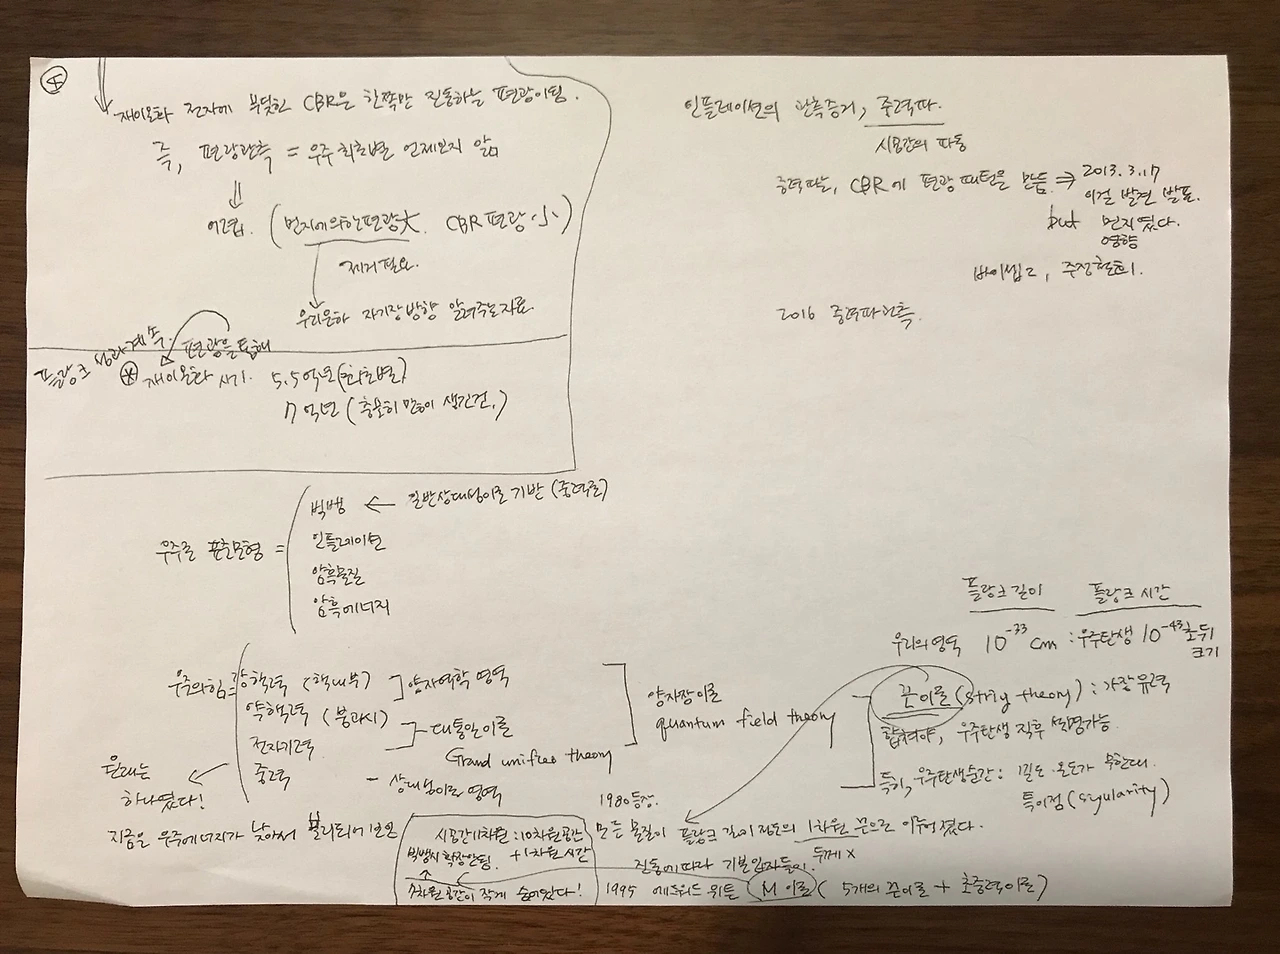 4
재이온화 전자에 부딪힌 CBR은 한쪽만 진동하는 편광이됨.
즉, 편광관측 = 우주 최초별 언제인지 앎
⇓
어렵다. (먼지에의한편광大. CBR 편광 小)
제거필요.
우리은하 자기장방향 알려주는자료.
플랑크 성과 계속. 편광을 통해
* 재이온화 시기. 5.5억년 (최초별)
7억년 (충분히 많이 생긴건.)
인플레이션의 관측증거, 중력파.
시공간의 파동
중력파는, CBR에 편광 패턴을 만듦 ⇒ 2013. 3. 17
이걸 발견 발표.
but 먼지였다.
영향
바이셉2, 주장철회.
2016 중력파관측.
우주론 표준모형 =
빅뱅 ← 일반상대성이론 기반 (중력론)
인플레이션
암흑물질
암흑에너지
플랑크길이 플랑크 시간
우리의영역 10⁻³³ cm : 우주탄생 10⁻⁴³초뒤
크기
우주의힘 = 강핵력 (핵내부) 양자역학 영역
약핵력 (붕괴시)
전자기력
중력
대통일이론
Grand unified theory
- 상대성이론 영역
양자장이론
quantum field theory
끈이론 (string theory) : 가장 유력
합쳐야, 우주탄생 직후 설명가능.
특히, 우주탄생순간 : 밀도·온도가 무한대.
특이점 (singularity)
원래는
하나였다!
지금은 우주에너지가 낮아서 분리되어 보임
1980등장.
모든 물질이 플랑크 길이 정도의 1차원 끈으로 이루어졌다.
두께 x
진동에따라 기본입자들이.
시공간11차원 : 10차원공간
+1차원 시간
빅뱅시 확장안됨.
7차원 공간이 작게 숨어있다!
1995 에드워드 위튼 M 이론 ( 5개의 끈이론 + 초중력이론)